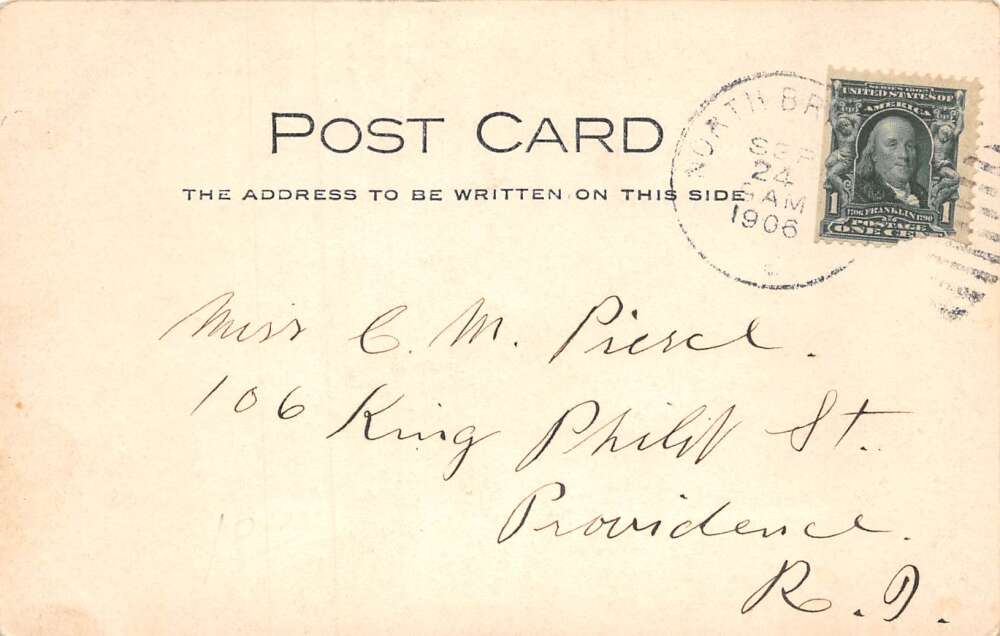 POST CARD
THE ADDRESS TO BE WRITTEN ON THIS SIDE
NORTH BR
SEP
24
AM
1906
SERIES 1902
UNITED STATES OF
AMERICA
1 1706 FRANKLIN 1790 1
POSTAGE
ONE CENT
Miss C. M. Pierce.
106 King Philip St.
Providence.
R. I.